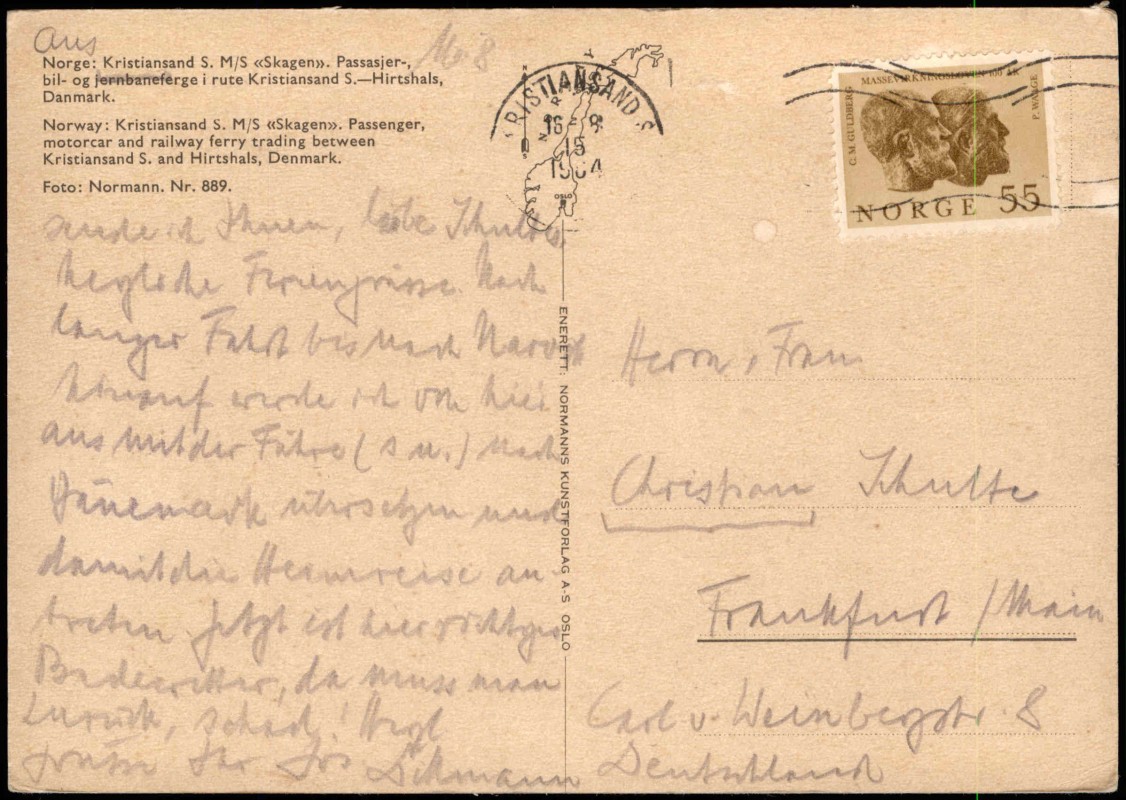 aus
Norge: Kristiansand S. M/S «Skagen». Passasjer-,
bil- og jernbaneferge i rute Kristiansand S.—Hirtshals,
Danmark.
Norway: Kristiansand S. M/S «Skagen». Passenger,
motorcar and railway ferry trading between
Kristiansand S. and Hirtshals, Denmark.
Foto: Normann. Nr. 889.
sende ich Ihnen, liebe Schultes
herzliche Feriengrüsse. Nach
langer Fahrt bis nach Narvik
hinauf werde ich von hier
aus mit der Fähre (s. u.) nach
Dänemark übersetzen und
damit die Heimreise an-
treten. Jetzt ist hier richtiges
Badewetter, da muss man
zurück, schad! Herzl
grüsse Ihr Dillmann
ENERETT: NORMANNS KUNSTFORLAG A-S OSLO
KRISTIANSAND S
16-8
15
1964
NORGE
OSLO
MASSEVIRKNINGSLOVEN 100 ÅR
C. M. GULDBERG
P. WAAGE
NORGE 55
Herrn, Frau
Christian Schulte
Frankfurt / Main
Carl v. Weinbergstr. 8
Deutschland